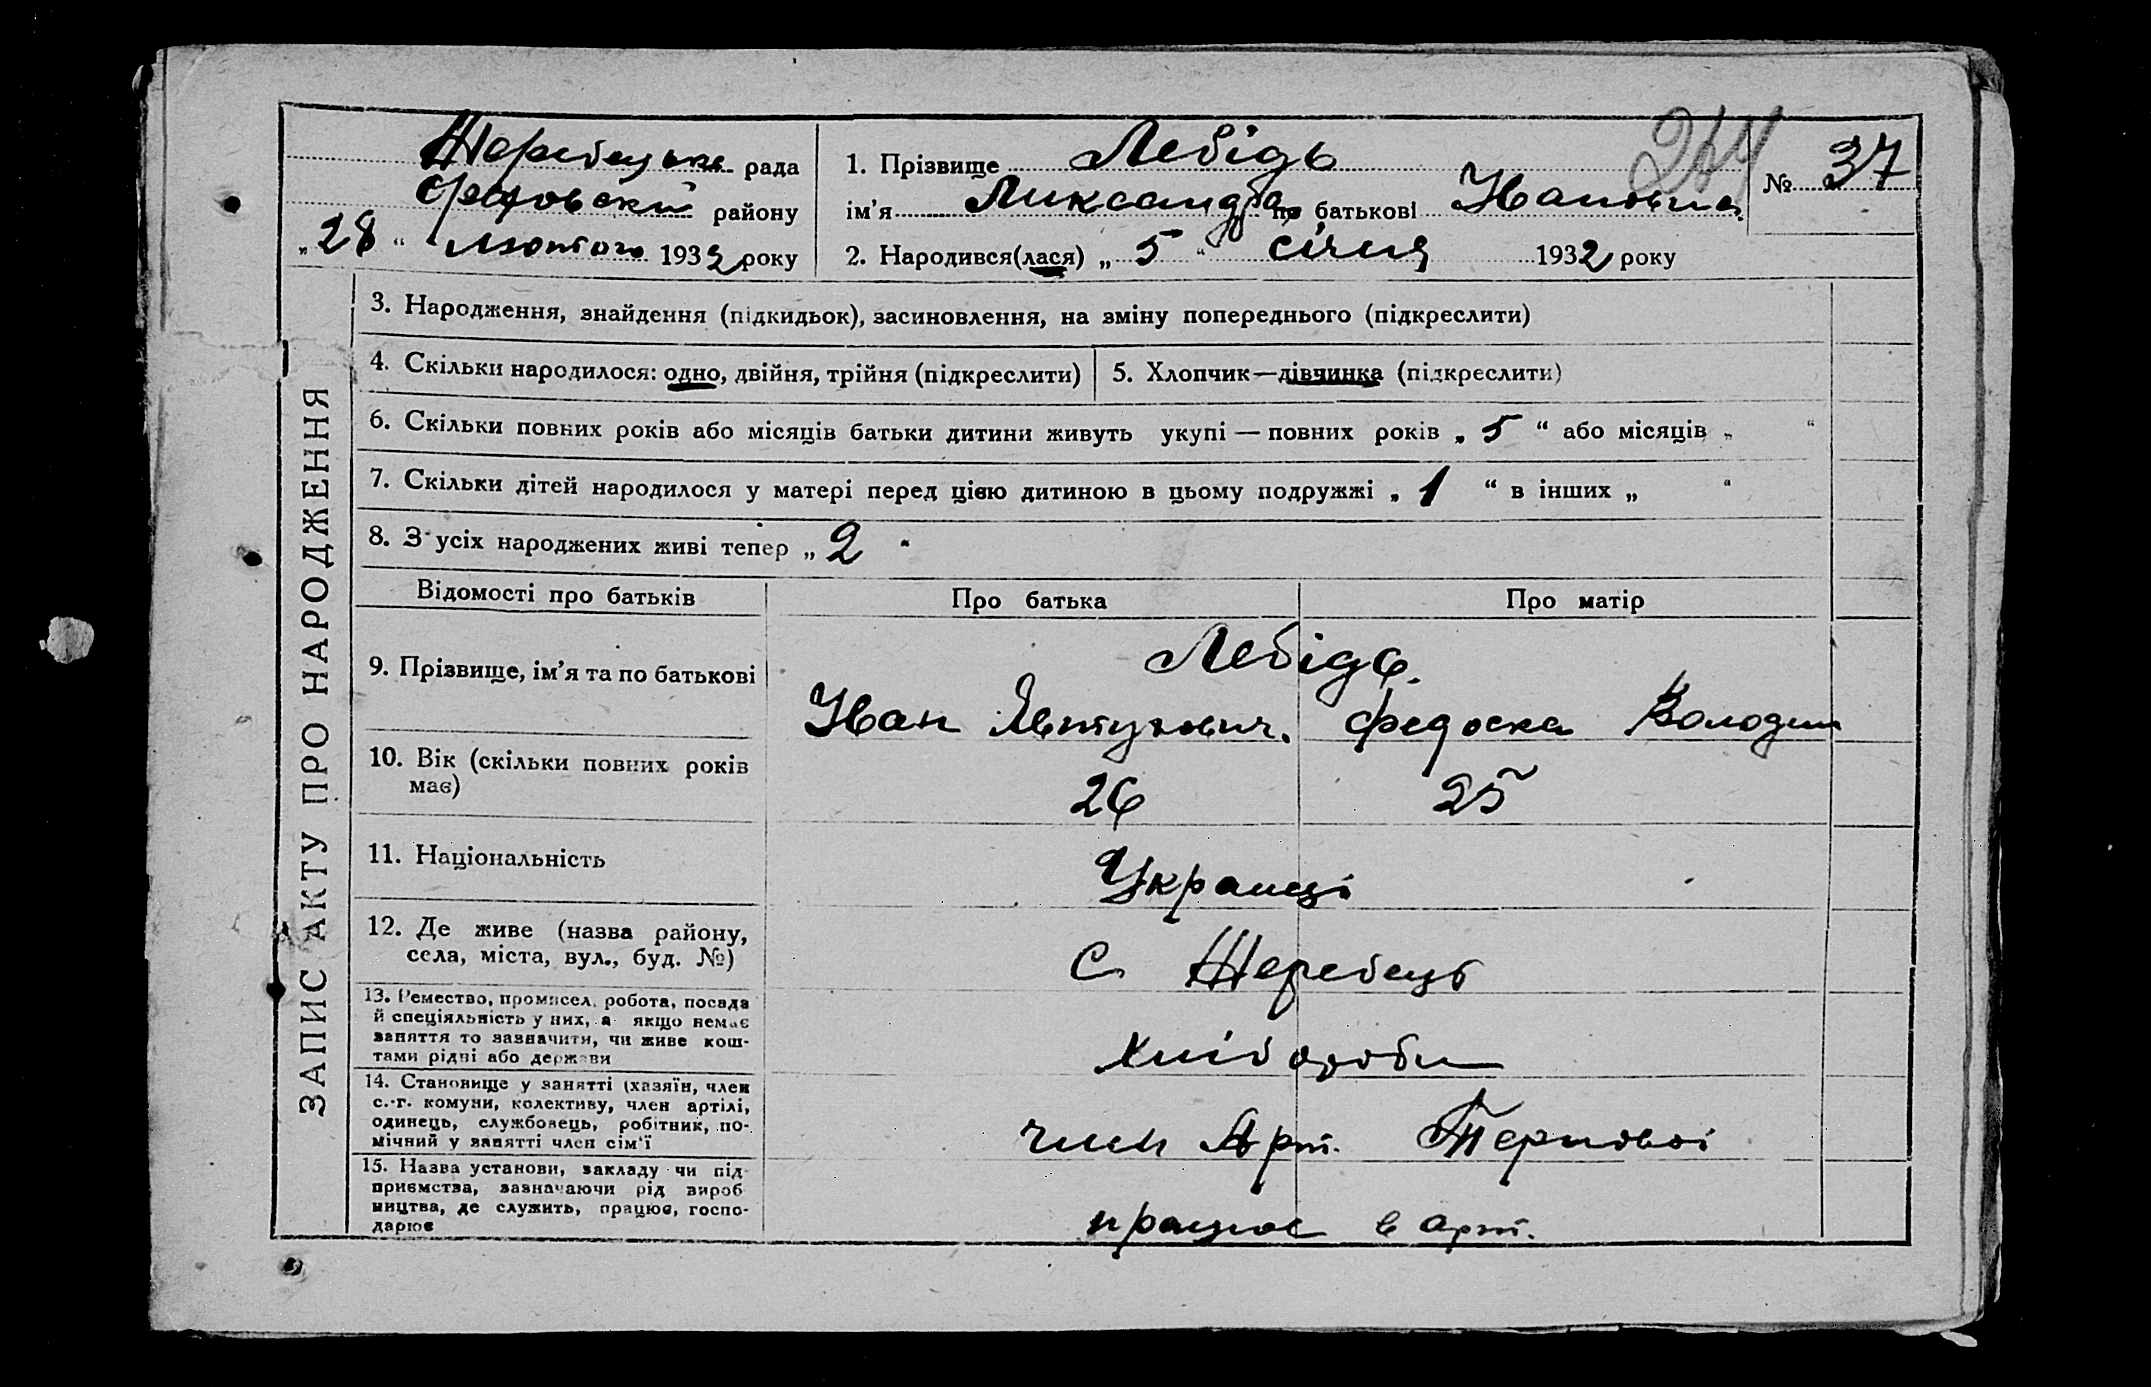 Жеребецька рада
району
„28“ лютого 1932 року
1. Прізвище Лебідь
ім’я Ликсандра по батькові Ивановна
2. Народився(лася) „5“ січня 1932 року
№ 37
ЗАПИС АКТУ ПРО НАРОДЖЕННЯ
3. Народження, знайдення (підкидьок), засиновлення, на зміну попереднього (підкреслити)
4. Скільки народилося: одно, двійня, трійня (підкреслити)
5. Хлопчик—дівчинка (підкреслити)
6. Скільки повних років або місяців батьки дитини живуть укупі — повних років „5“ або місяців „ “
7. Скільки дітей народилося у матері перед цією дитиною в цьому подружжі „1“ в інших „ “
8. З усіх народжених живі тепер „2“
Відомості про батьків Про батька Про матір
9. Прізвище, ім’я та по батькові
Лебідь.
Иван Явтухович. Федоска Володим
10. Вік (скільки повних років
має)
26 25
11. Національність
Украінці
12. Де живе (назва району,
села, міста, вул., буд. №)
с Жеребець
13. Ремество, промисел, робота, посада
й спеціяльність у них, а якщо немає
заняття то зазначити, чи живе кош-
тами рідні або держави
хлібороби
14. Становище у занятті (хазяїн, член
с.-г. комуни, колективу, член артілі,
одинець, службовець, робітник, по-
мічний у занятті член сім’ї
член Арт.
15. Назва установи, закладу чи під
приємства, зазначаючи рід вироб
ництва, де служить, працює, госпо-
дарює
працює в арт.